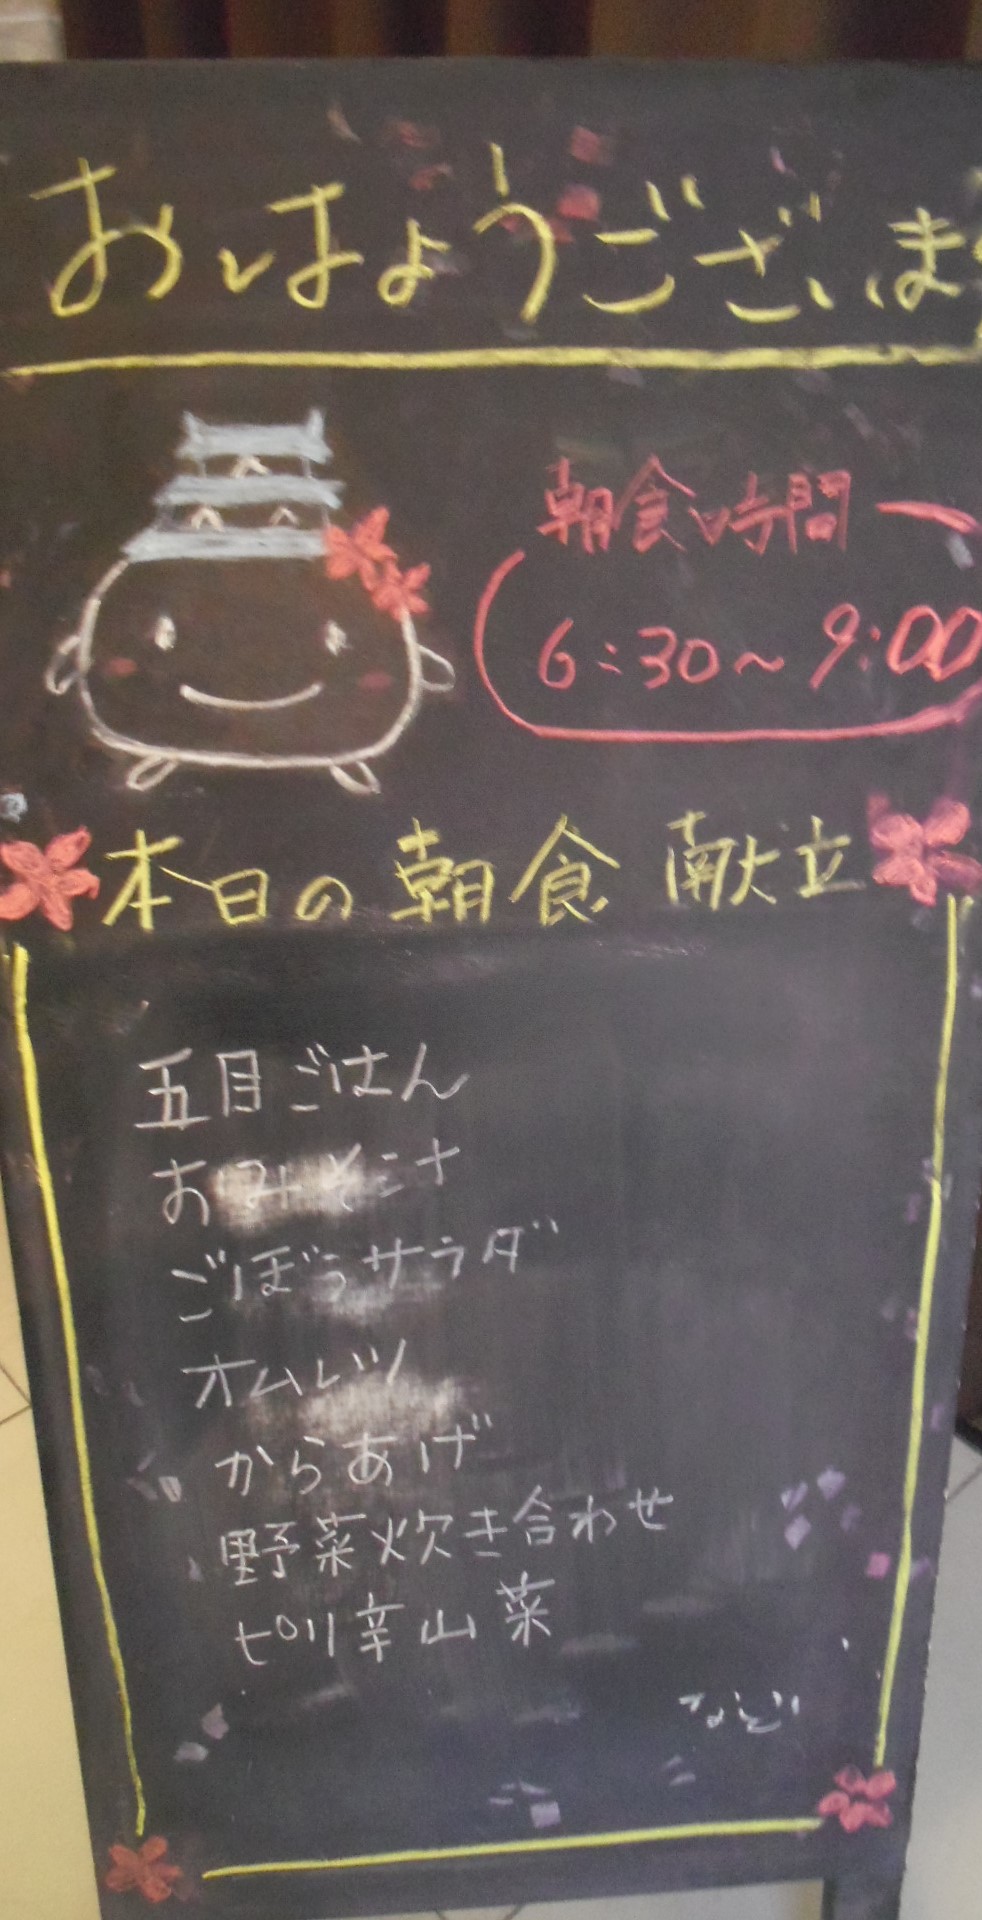 おはようございま
朝食時間
6:30～9:00
本日の朝食献立
五目ごはん
おみそ汁
ごぼうサラダ
オムレツ
からあげ
野菜炊き合わせ
ピリ辛山菜
など